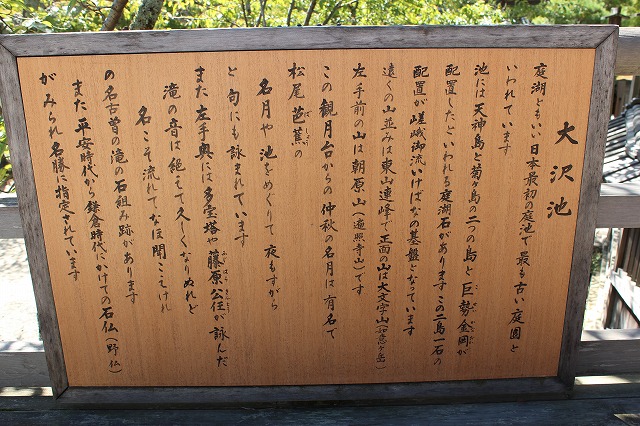 大沢池
庭湖ともいい日本最初の庭池で最も古い庭園と
いわれています
池には天神島と菊ヶ島の二つの島と巨勢金岡が
配置したといわれる庭湖石があります この二島一石の
配置が嵯峨御流いけばなの基盤となっています
遠くの山並みは東山連峰で正面の山は大文字山(如意ヶ岳)
左手前の山は朝原山(遍照寺山)です
この観月台からの仲秋の名月は有名で
松尾芭蕉の
名月や 池をめぐりて 夜もすがら
と句にも詠まれています
また左手奥には多宝塔や藤原公任が詠んだ
滝の音は絶えて久しくなりぬれど
名こそ流れてなほ聞こえけれ
の名古曽の滝の石組み跡があります
また 平安時代から鎌倉時代にかけての石仏(野仏)
がみられ名勝に指定されています